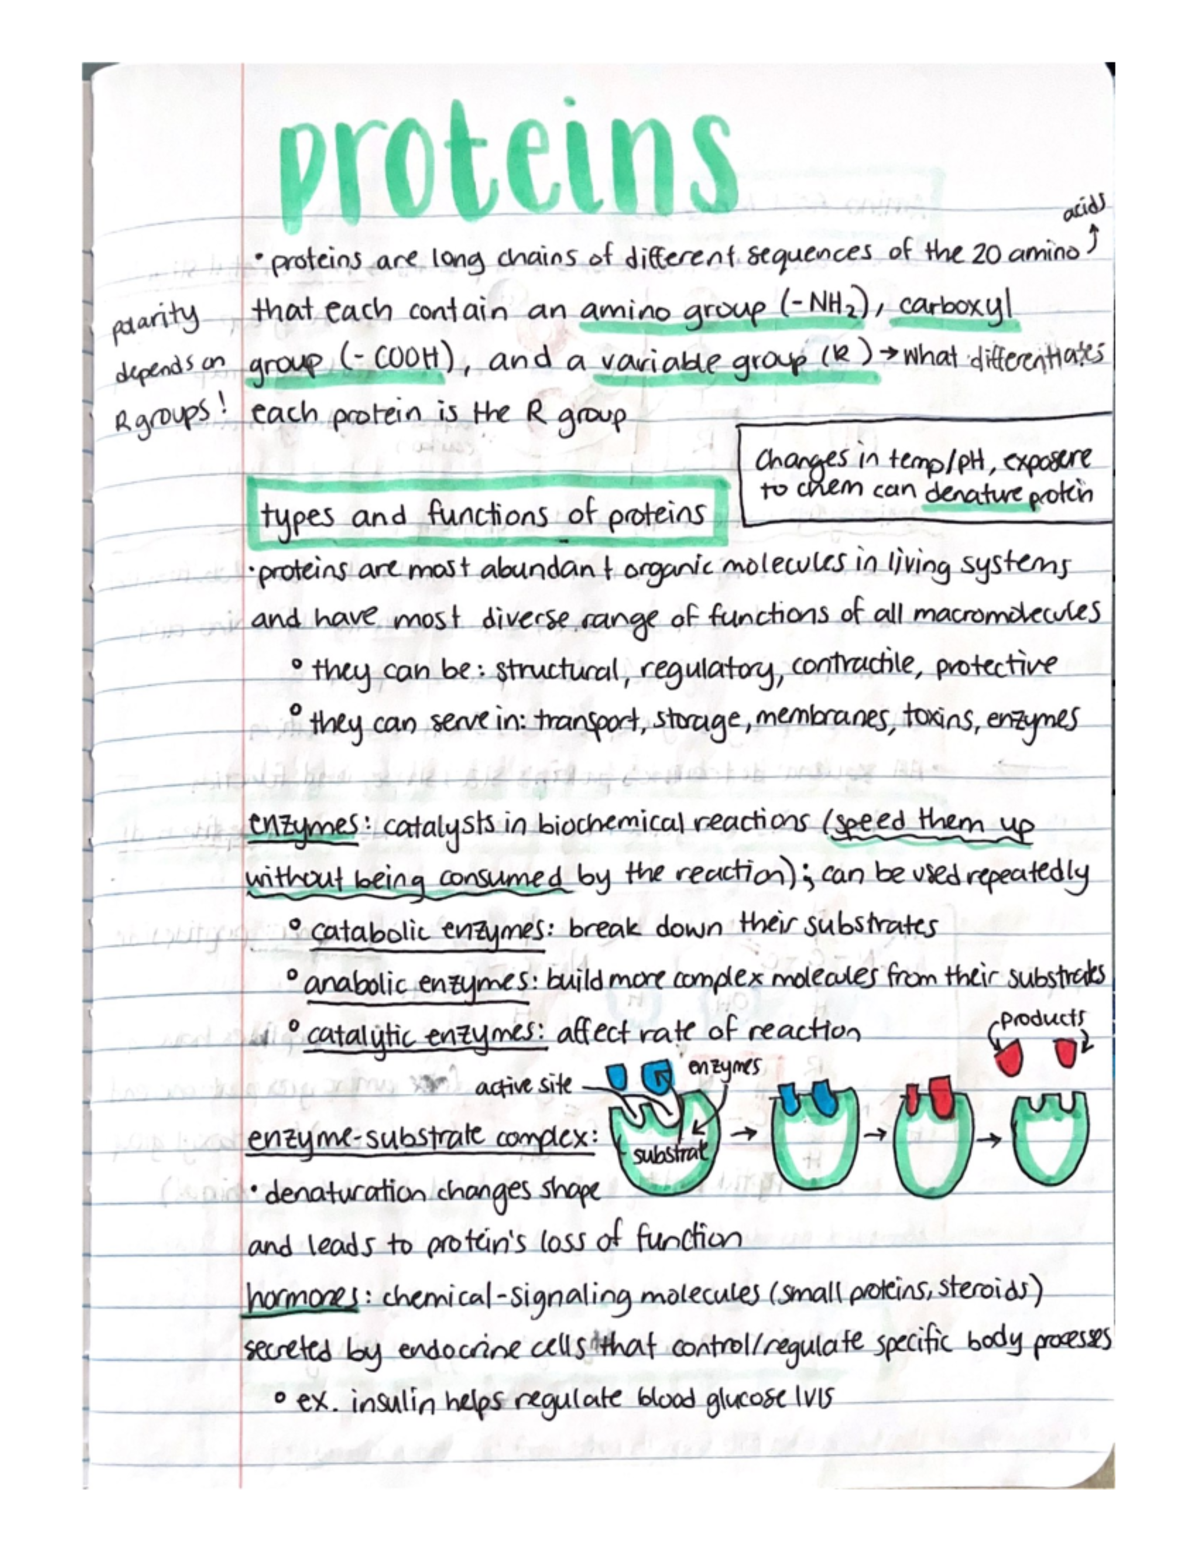 proteins
acids
• proteins are long chains of different sequences of the 20 amino
that each contain an amino group (-NH2), carboxyl
polarity
group (-COOH), and a variable group (R) → what differentiates
depends on
each protein is the R group
R groups!
changes in temp/pH, exposere
to chem can denature protein
types and functions of proteins
• proteins are most abundant organic molecules in living systems
and have most diverse range of functions of all macromolecules
° they can be: structural, regulatory, contractile, protective
° they can serve in: transport, storage, membranes, toxins, enzymes
enzymes: catalysts in biochemical reactions (speed them up
without being consumed by the reaction); can be used repeatedly
° catabolic enzymes: break down their substrates
° anabolic enzymes: build more complex molecules from their substrates
° catalytic enzymes: affect rate of reaction
products
active site
enzymes
enzyme-substrate complex:
substrat
→ → →
• denaturation changes shape
and leads to protein's loss of function
hormones: chemical-signaling molecules (small proteins, steroids)
secreted by endocrine cells that control/regulate specific body processes
° ex. insulin helps regulate blood glucose lvls